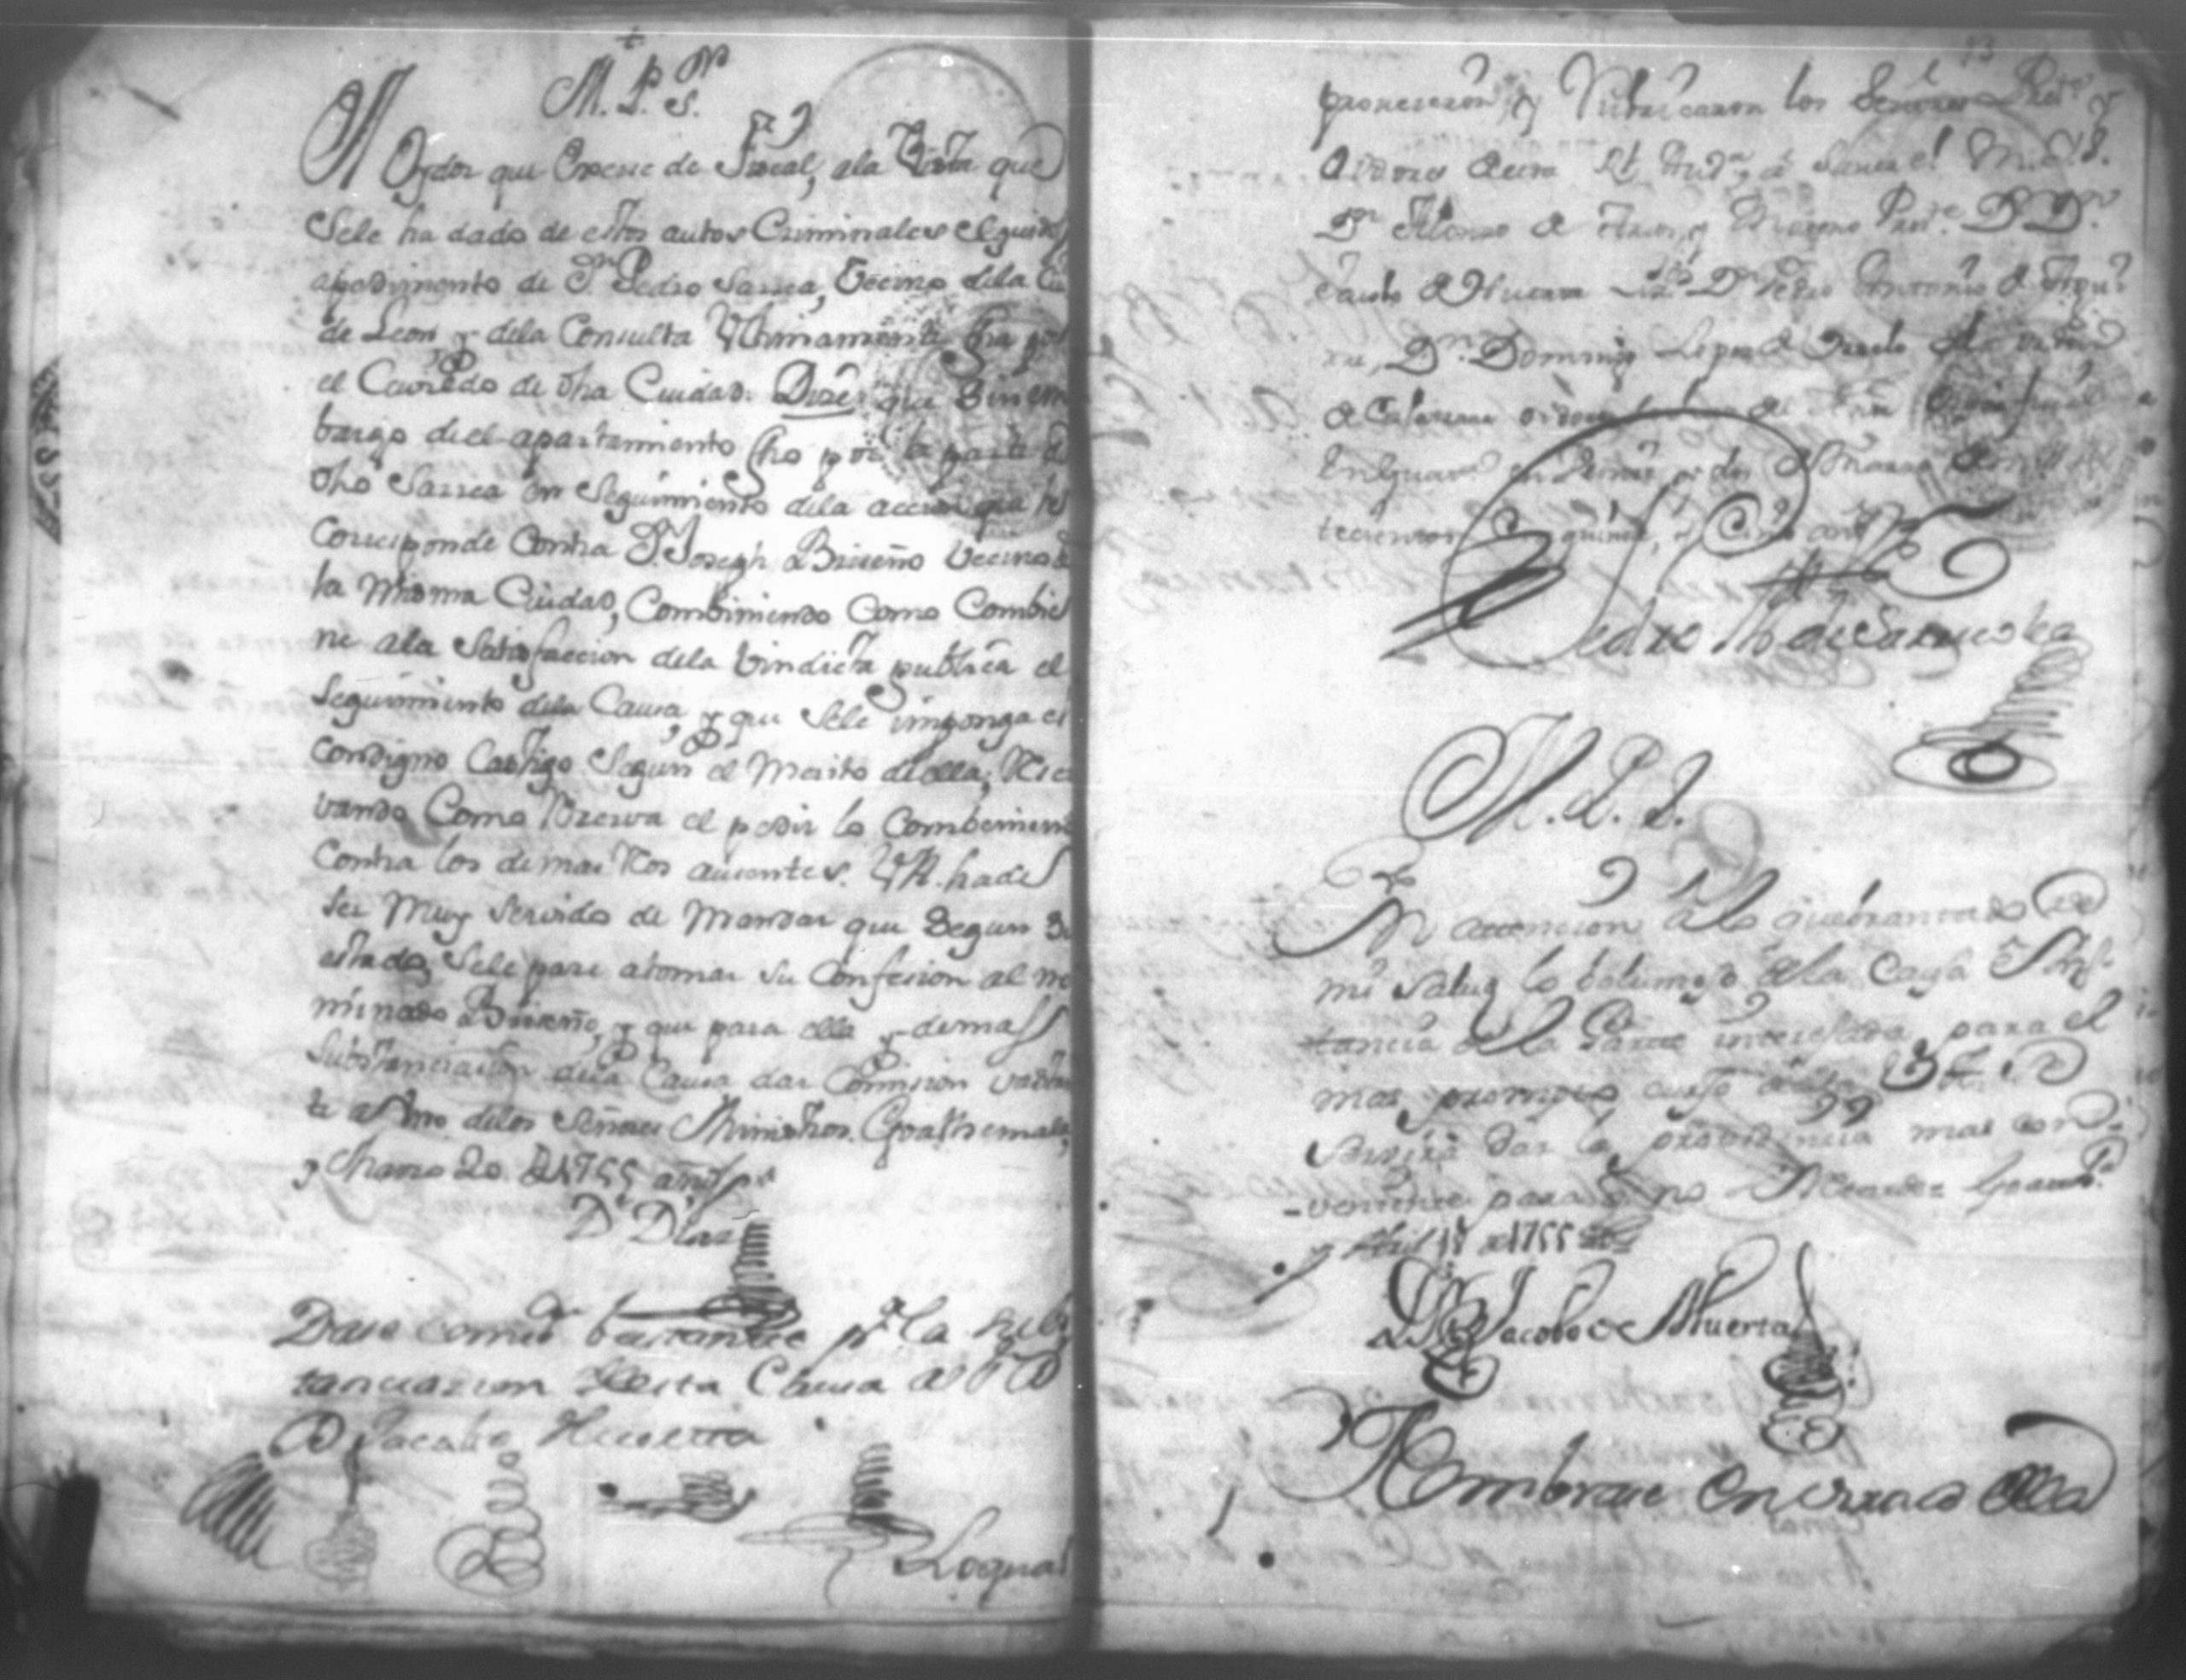 M. P. S.
El Oydor que Exerse de Fiscal, ala Vista que
Sele ha dado de estos autos Criminales Seguidos
apedimento de Dn. Pedro Sarria, Vecino dela Ciu
de Leon, y dela Consulta Ultimamente fha por
el Cavildo de dha Ciudad. Dize que Sin em
bargo de el apartamiento fho por la parte de
dho Sarria en Seguimiento dela accion que le
Corresponde Contra Dn. Joseph Briceño Vecino de
la misma Ciudad, Combiniendo Como Combie
ne ala Satisfaccion dela Vindicta publica el
Seguimiento dela Causa, y que Sele imponga el
condigno Castigo Segun el Merito de ella; Rese
vando Como Reserva el pedir lo Combeniente
Contra los demas Reos ausentes. VA. hade
ser Muy Servido de Mandar que Segun Su
estado, Sele pase atomar su Confesion al no
minado Briceño, y que para ella y demas
Substanciacion dela Causa dar Comision vastan
te a Uno delos Señores Ministros. Goathemala,
y Marzo 20 de 1755 años
Dr. Dias
Dase comison bastante pa. la subs
tanciazion desta Causa al Sr. D
D Jacobo Huerta
Loqual
13
proveieron, y Rubricaron los Señores Preste. y
Oidores de esta Rl. Auda. a saver el M. I. S.
Dn. Alonso de Arcos, y Moreno Preste. D. Dn.
Jacobo de Huerta Lizdo. Dn. Pedro Antonio de Aqui
Dn. Domingo Lopez de
de
En Guatha. en
tecientos Cinquenta, y Cinco años
Pedro Ph. de Sarricolea
M. P. S.
En atencion a lo quebrantado de
mi salud lo bolumoso de la Causa e Ins-
tancia de la Parte interesada, para el
mas prompto curso de ella VA. se
servira dar la providencia mas con-
-veniente para que no se Atrasse Goatha.
y Abril 17 de 1755
Dr. Dn. Jacobo de Huerta
Nombrase En lugar del